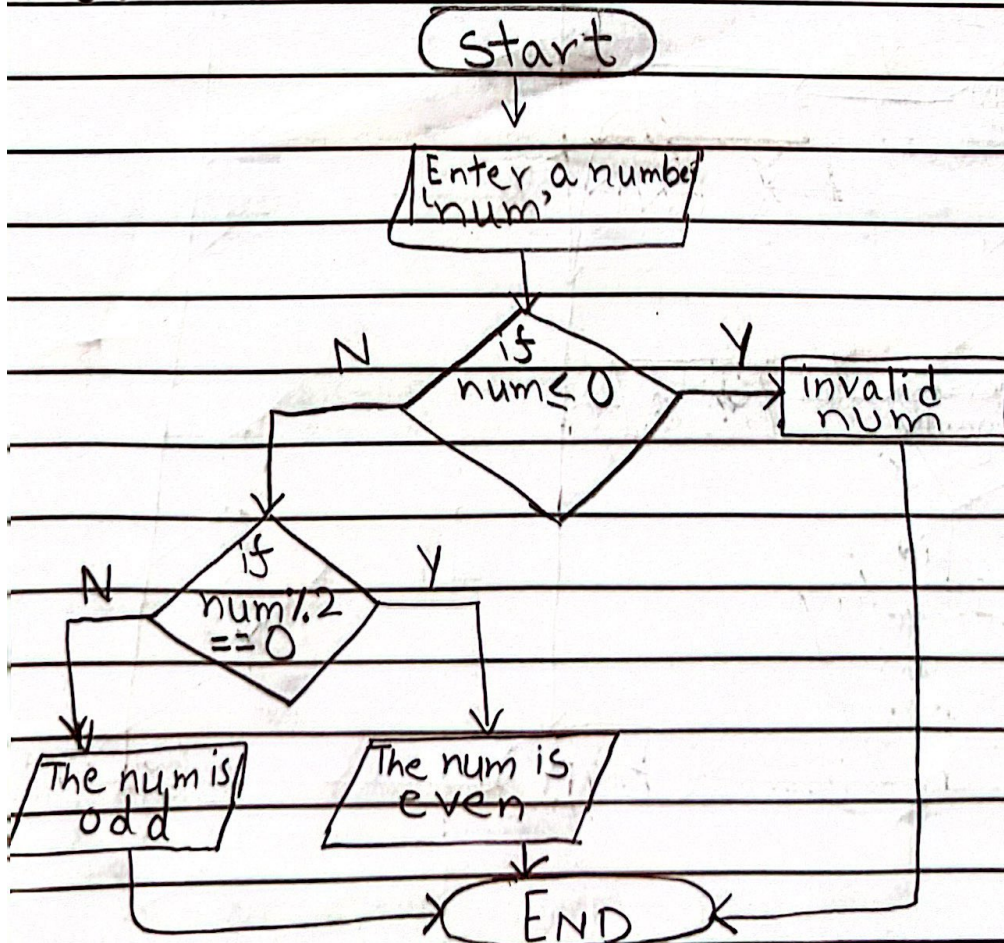 start
Enter a number
'num'
if
num ≤ 0
N
Y
invalid
num
if
num%2
== 0
N
Y
The num is
odd
The num is
even
END